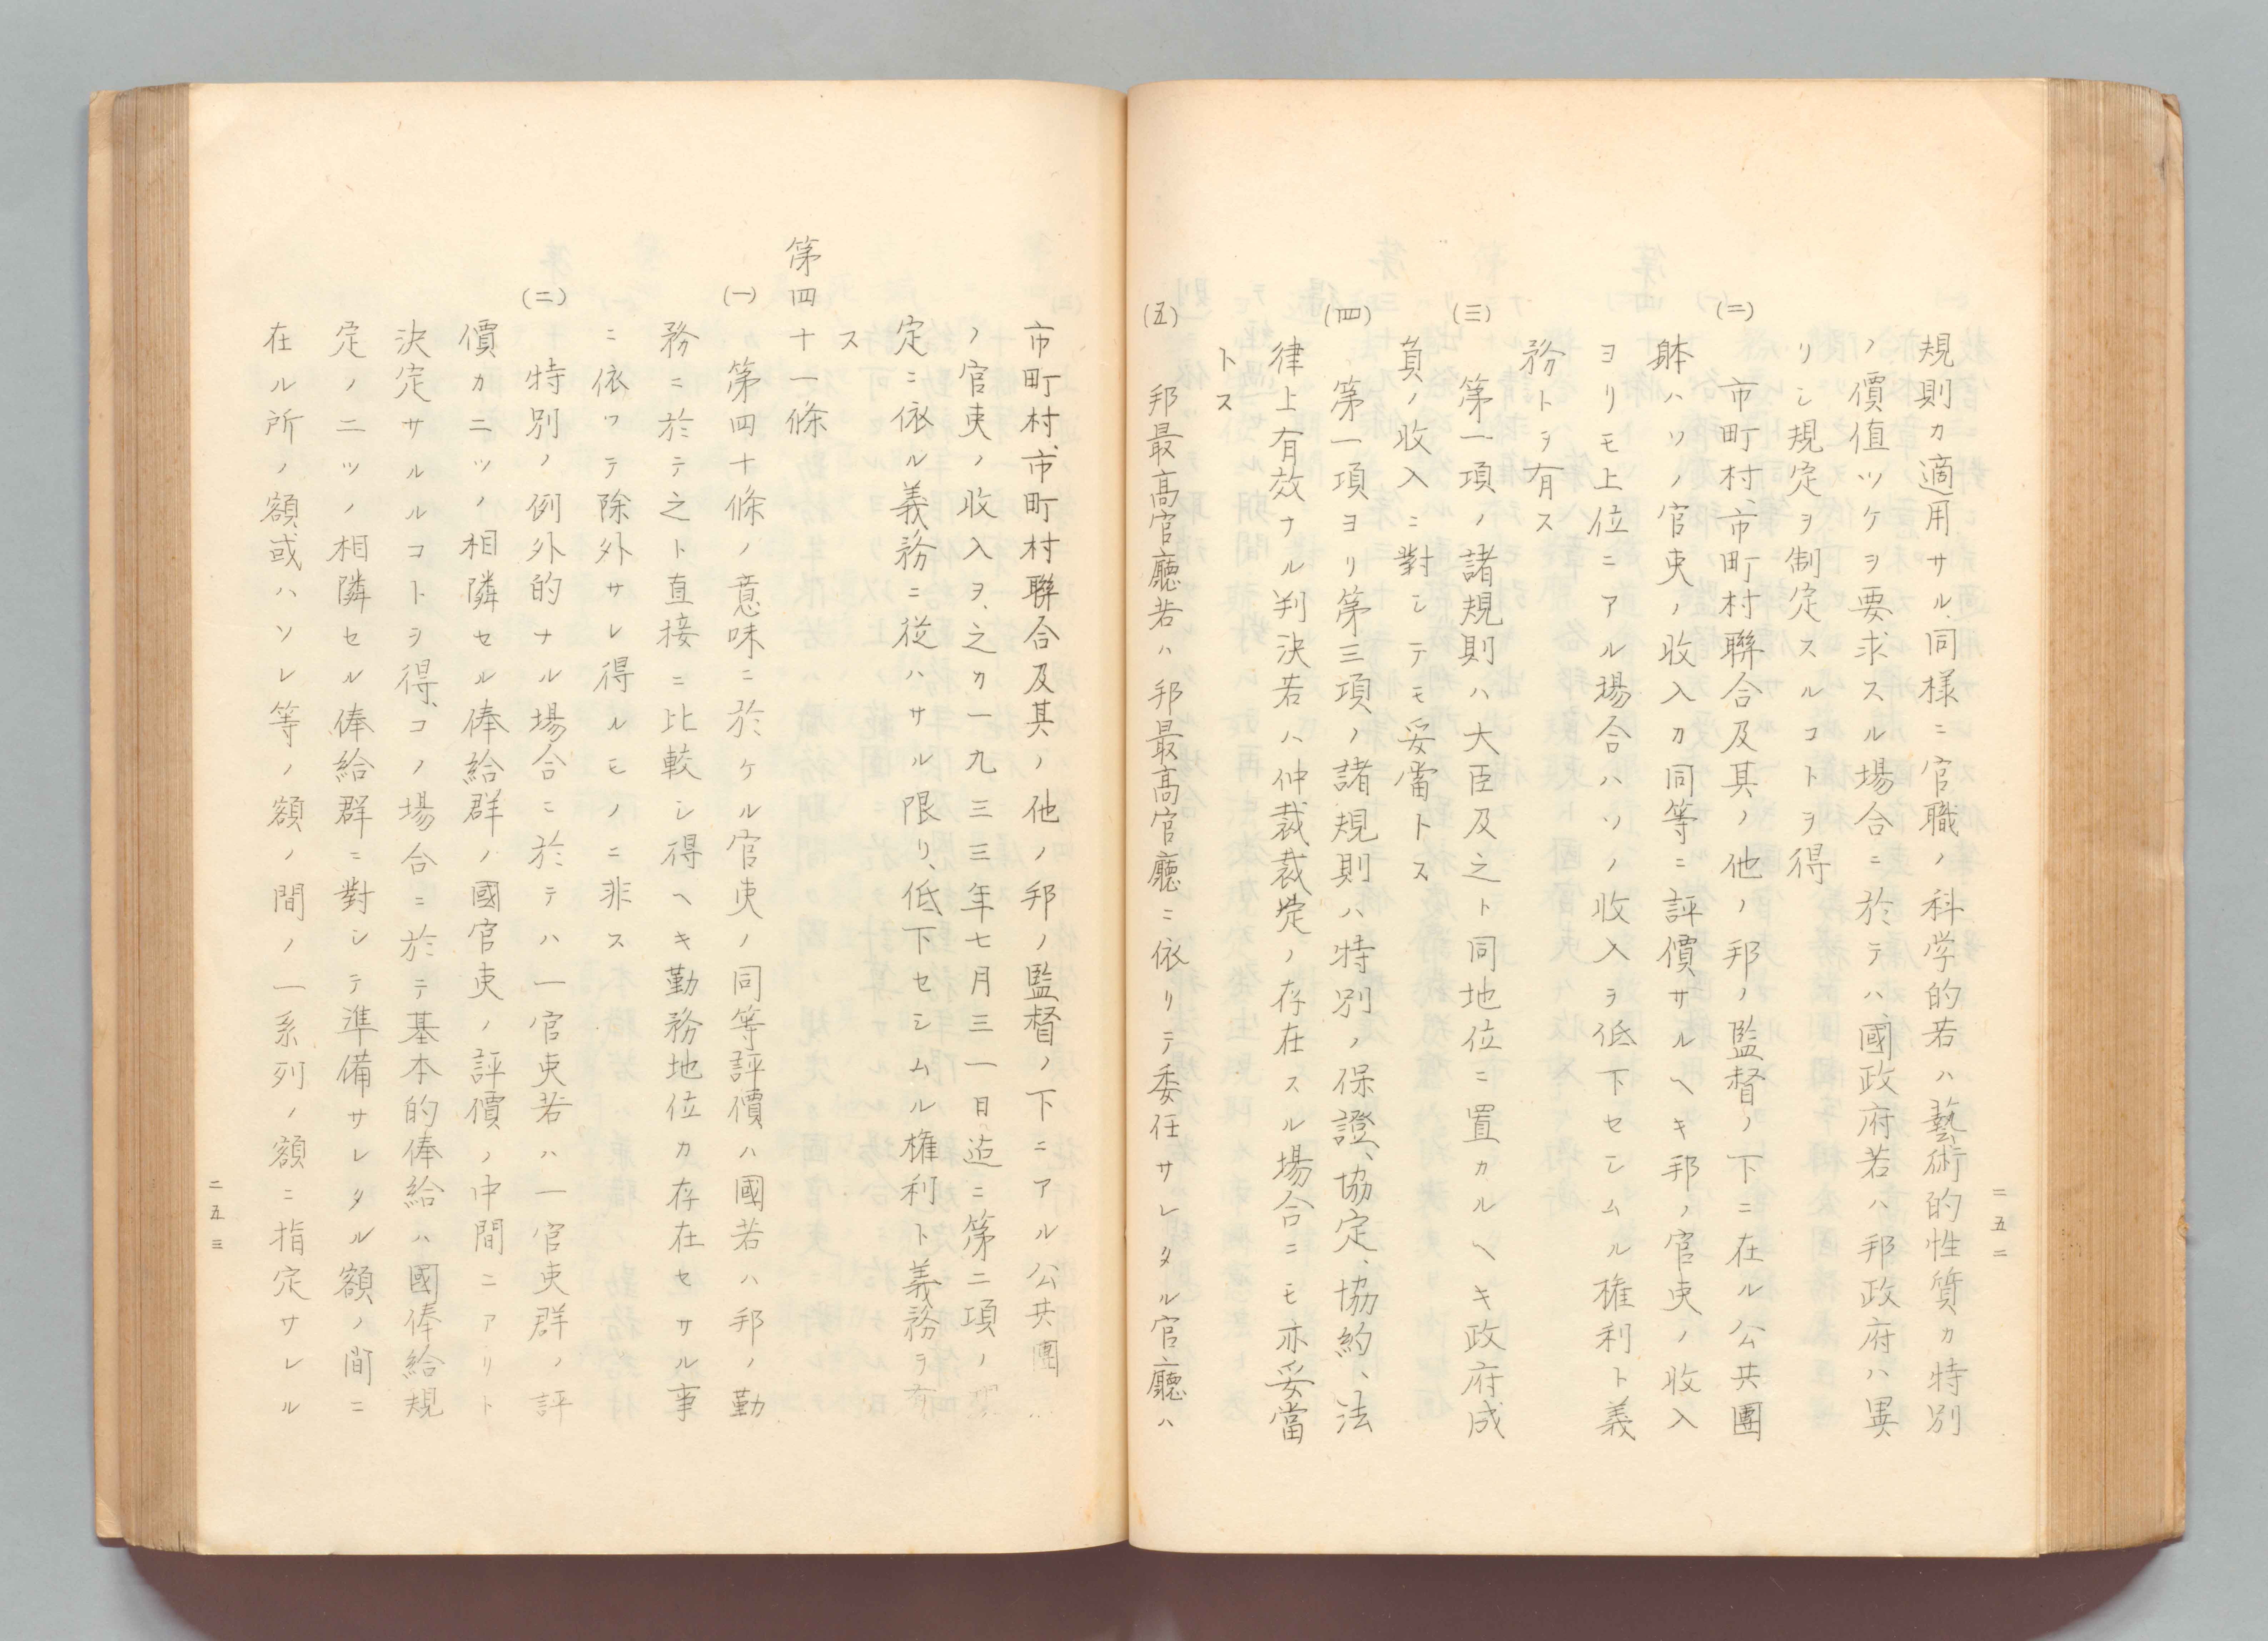 規則カ適用サル、同様ニ官職ノ科学的若ハ藝術的性質カ特別
ノ價値ツケヲ要求スル場合ニ於テハ、國政府若ハ邦政府ハ異
リシ規定ヲ制定スルコトヲ得
(二) 市町村、市町村聯合及其ノ他ノ邦ノ監督ノ下ニ在ル公共團
躰ハソノ官吏ノ收入カ同等ニ評價サルヘキ邦ノ官吏ノ收入
ヨリモ上位ニアル場合ハソノ收入ヲ低下セシムル権利ト義
務トヲ有ス
(三) 第一項ノ諸規則ハ大臣及之ト同地位ニ置カルヘキ政府成
負ノ收入ニ對シテモ妥當トス
(四) 第一項ヨリ第三項ノ諸規則ハ特別ノ保證、協定、協約、法
律上有效ナル判決若ハ仲裁裁定ノ存在スル場合ニモ亦妥當
トス
(五) 邦最高官廳若ハ邦最高官廳ニ依リテ委任サレタル官廳ハ
二五二
市町村、市町村聯合及其ノ他ノ邦ノ監督ノ下ニアル公共團
ノ官吏ノ收入ヲ、之カ一九三三年七月三一日迄ニ第二項ノ
定ニ依ル義務ニ從ハサル限リ、低下セシムル権利ト義務ヲ有
ス
第四十一條
(一) 第四十條ノ意味ニ於ケル官吏ノ同等評價ハ國若ハ邦ノ勤
務ニ於テ之ト直接ニ比較シ得ヘキ勤務地位カ存在セサル事
ニ依ツテ除外サレ得ルモノニ非ス
(二) 特別ノ例外的ナル場合ニ於テハ一官吏若ハ一官吏群ノ評
價カ二ツノ相隣セル俸給群ノ國官吏ノ評價ノ中間ニアリト
決定サルルコトヲ得、コノ場合ニ於テ基本的俸給ハ國俸給規
定ノ二ツノ相隣セル俸給群ニ對シテ準備サレタル額ノ間ニ
在ル所ノ額或ハソレ等ノ額ノ間ノ一系列ノ額ニ指定サレル
二五三